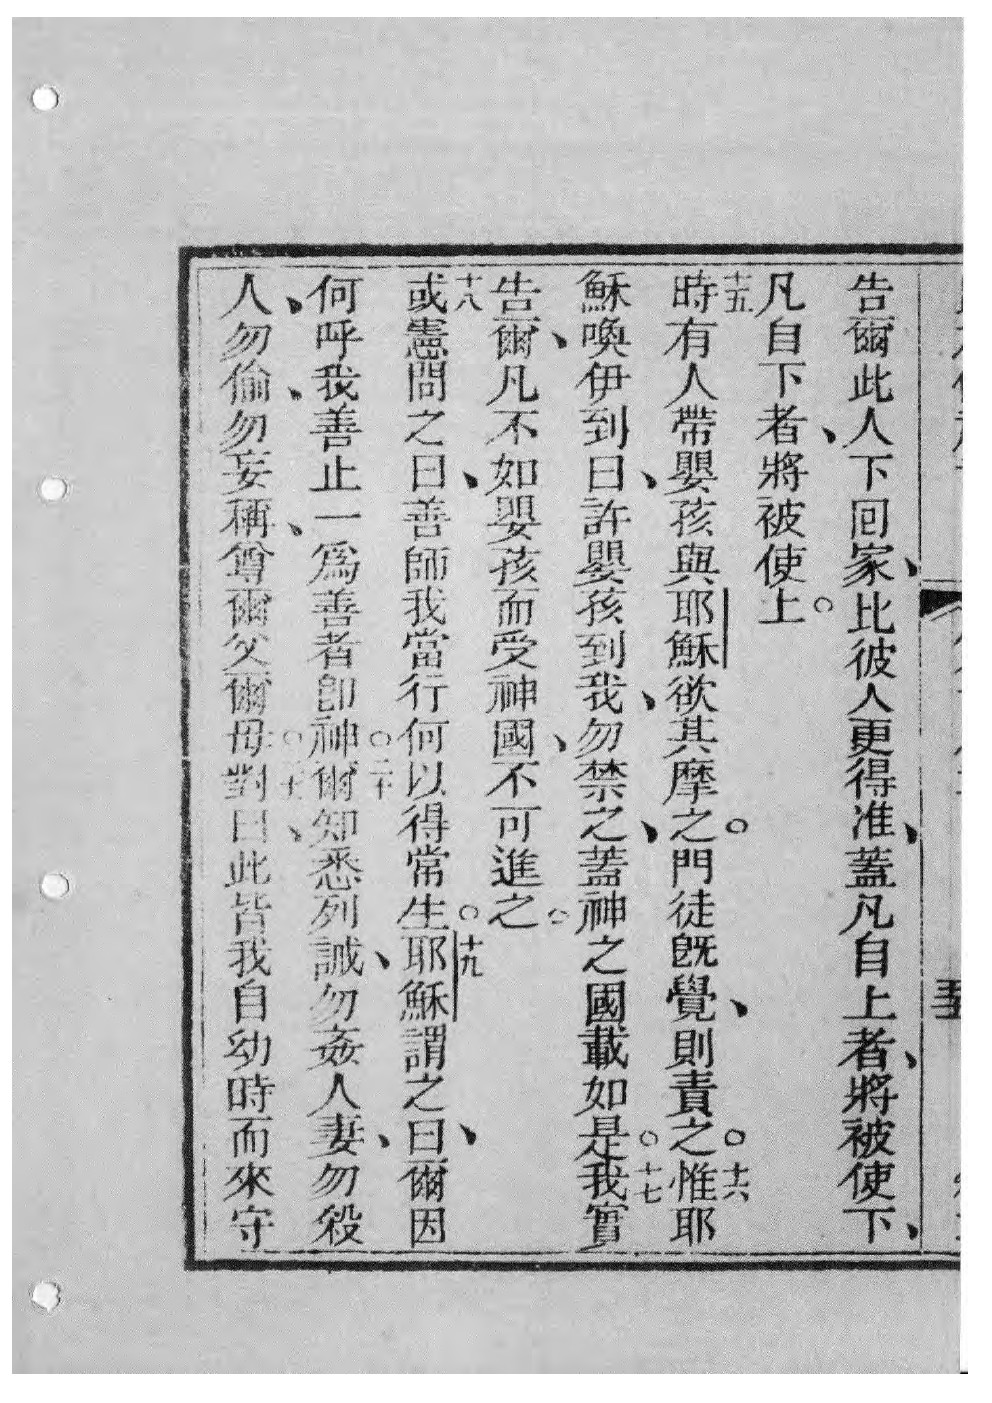 告爾此人下回家、比彼人更得准、蓋凡自上者、將被使下、
凡自下者、將被使上。
十五時有人帶嬰孩與耶穌欲其摩之。門徒旣覺、則責之。十六惟耶
穌喚伊到曰、許嬰孩到我、勿禁之、蓋神之國載如是。十七我實
告爾、凡不如嬰孩而受神國、不可進之。
十八或憲問之曰、善師我當行何以得常生。十九耶穌謂之曰、爾因
何呼我善止一為善者卽神。二十爾知悉列誡、勿姦人妻、勿殺
人、勿偷、勿妄稱、尊爾父爾母。二十一對曰、此皆我自幼時而來守
五